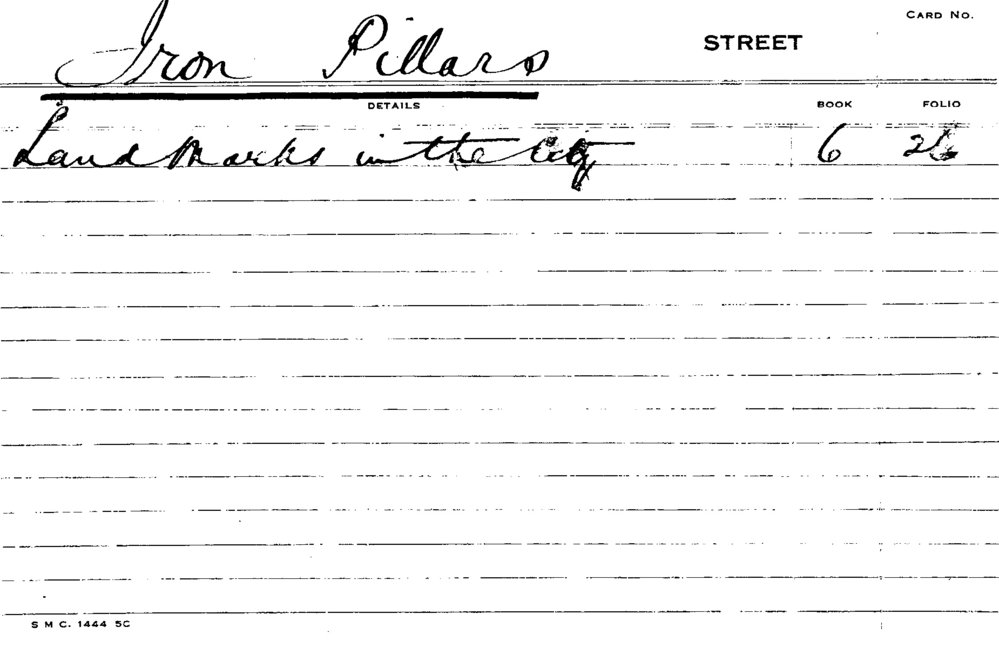 CARD NO.
Iron Pillars STREET
DETAILS BOOK FOLIO
Land Marks in the City 6 26
S M C. 1444 5C